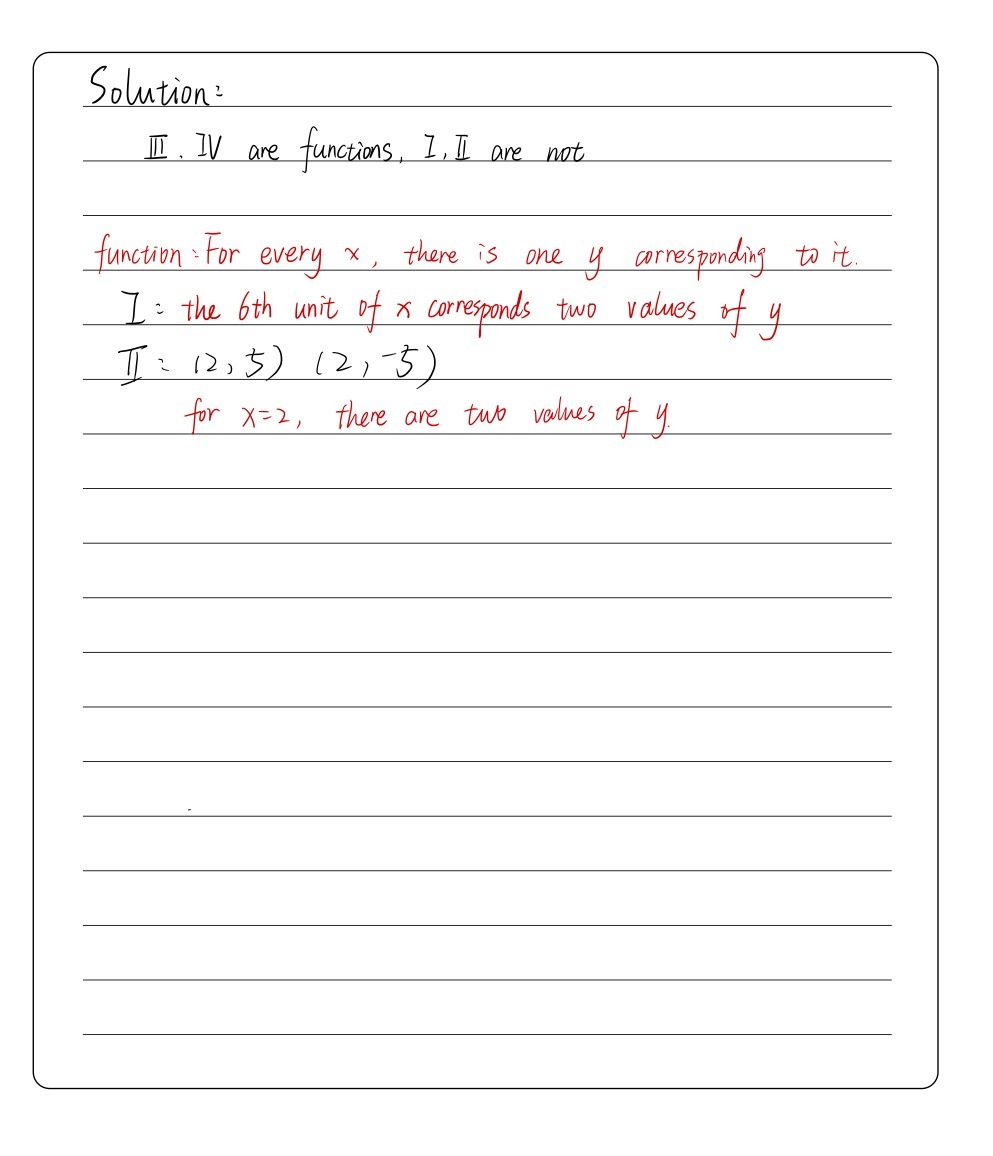 Solution:
III. IV are functions, I, II are not
function: For every x, there is one y corresponding to it.
I: the 6th unit of x corresponds two values of y
II: (2, 5) (2, -5)
for x=2, there are two values of y.